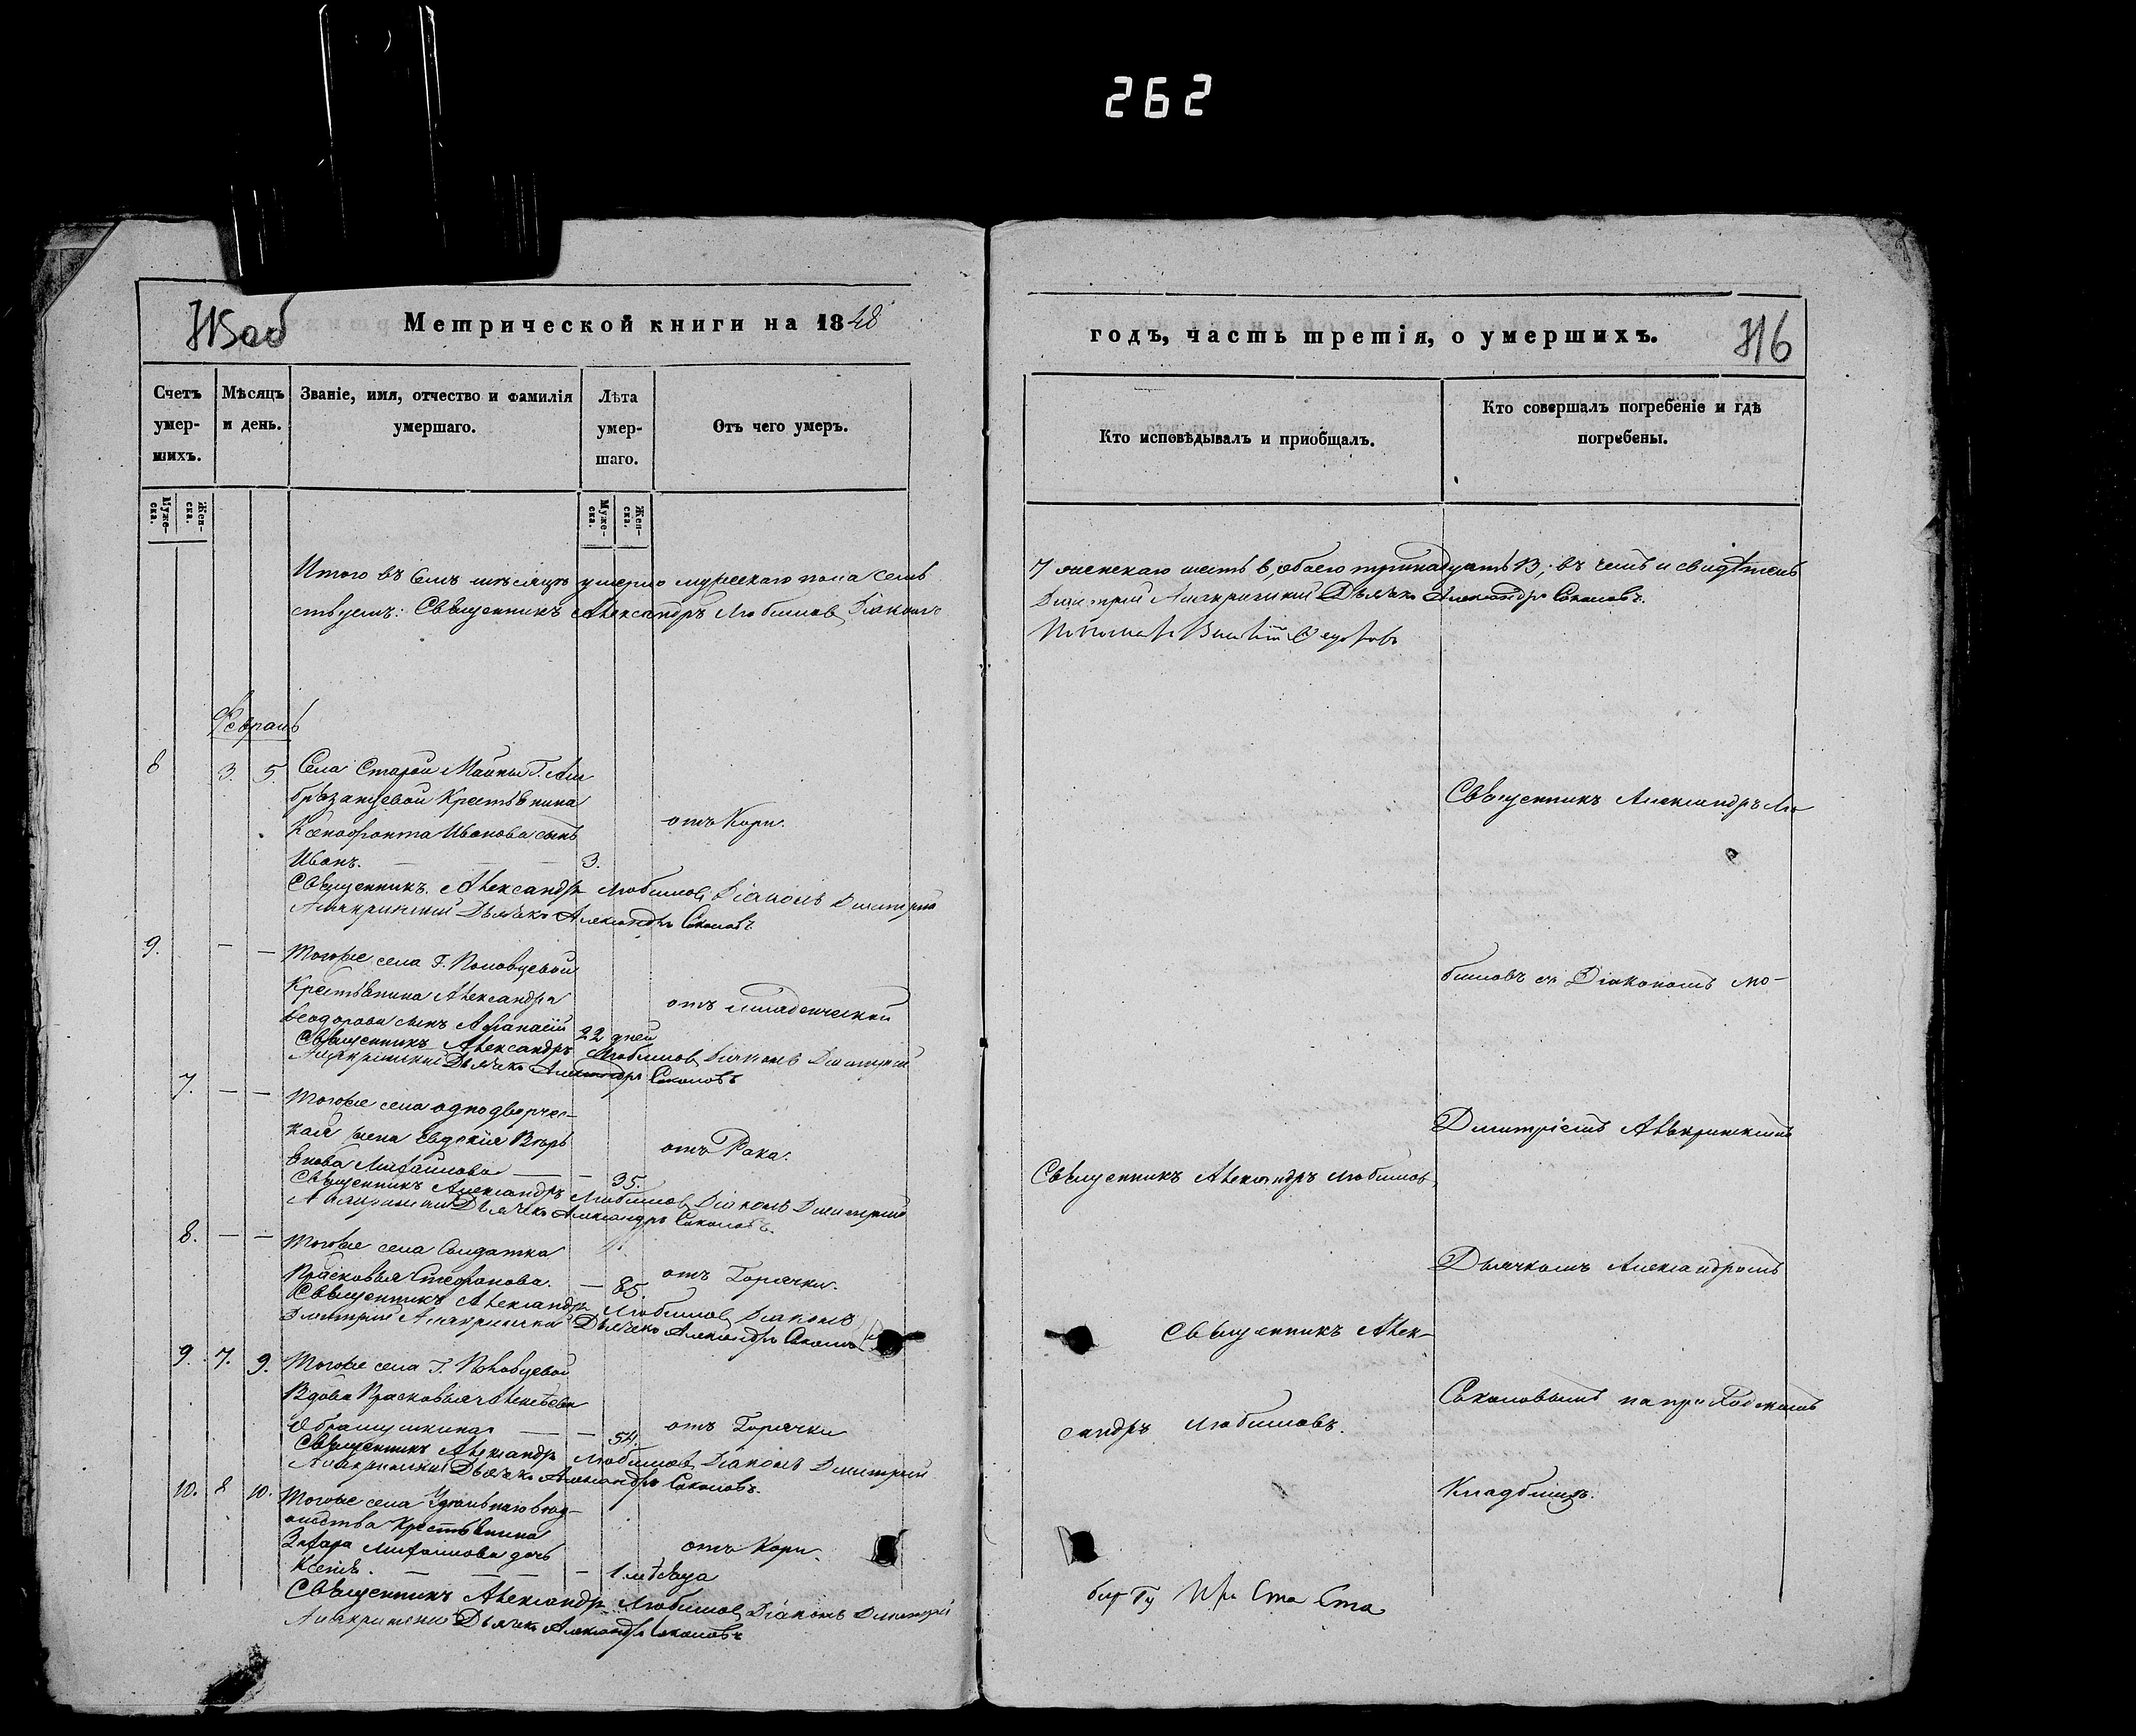 262
Метрической книги на 1848
годъ, часть третія, о умершихъ.
Счетъ умер-шихъ.
Мѣсяцъ и день.
Званіе, имя, отчество и фамилія умершаго.
Лѣта умер-шаго.
Отъ чего умеръ.
Кто исповѣдывалъ и приобщалъ.
Кто совершалъ погребеніе и гдѣ погребены.
Муже-ска.
Жен-ска.
Муже-ска.
Жен-ска.
Итого въ семъ мѣсяцѣ умерло мужескаго пола семь
7 женскаго шесть 6, обоего тринадцать 13; въ чемъ и свидѣтель
ствуемъ: Священникъ Александръ Любимовъ Діаконъ
Димитрій Дьячекъ Александръ Соколовъ.
Пономарь
Февраль
8 3. 5. Села Старой Майны Г.
Крестьянина
Ксенофонта Иванова сынъ
отъ Кори.
Иванъ. 3.
Священникъ Александръ Любимовъ Діаконъ Димитрій
Дьячекъ Александръ Соколовъ
9. — — Тогоже села Г. Половцевой
Крестьянина Александра
отъ младенческой
Ѳеодорова сынъ Афанасій 22 дней
Священникъ Александръ Любимовъ Діаконъ Димитрій
Дьячекъ Александръ Соколовъ
7. — — Тогоже села однодворчес-
кая жена Евдокія
отъ Рака.
Михайлова — — 35.
Священникъ Александръ Любимовъ Діаконъ Димитрій
Дьячекъ Александръ Соколовъ.
8. — — Тогоже села Солдатка
Прасковья Стефанова. — 85.
отъ Горячки.
Священникъ Александръ Любимовъ Діаконъ
Димитрій Дьячекъ Александръ Соколовъ
9. 7. 9. Тогоже села Г. Половцевой
Вдова Прасковья Алексѣева
— — 54.
отъ Горячки
Священникъ Александръ Любимовъ Діаконъ Димитрій
Дьячекъ Александръ Соколовъ.
10. 8 10. Тогоже села Удѣльнаго вѣд-
омства Крестьянина
Захара Михайлова дочь
отъ Кори.
Ксенія. — — — — 1 мѣсяца
Священникъ Александръ Любимовъ Діаконъ Димитрій
Дьячекъ Александръ Соколовъ
Священникъ Александръ Любимовъ,
Священникъ Алек-
сандръ Любимовъ.
Священникъ Александръ Лю
бимовъ съ Діакономъ
Дмитріемъ
Дьячкомъ Александромъ
Соколовымъ на приходскомъ
Кладбищѣ.